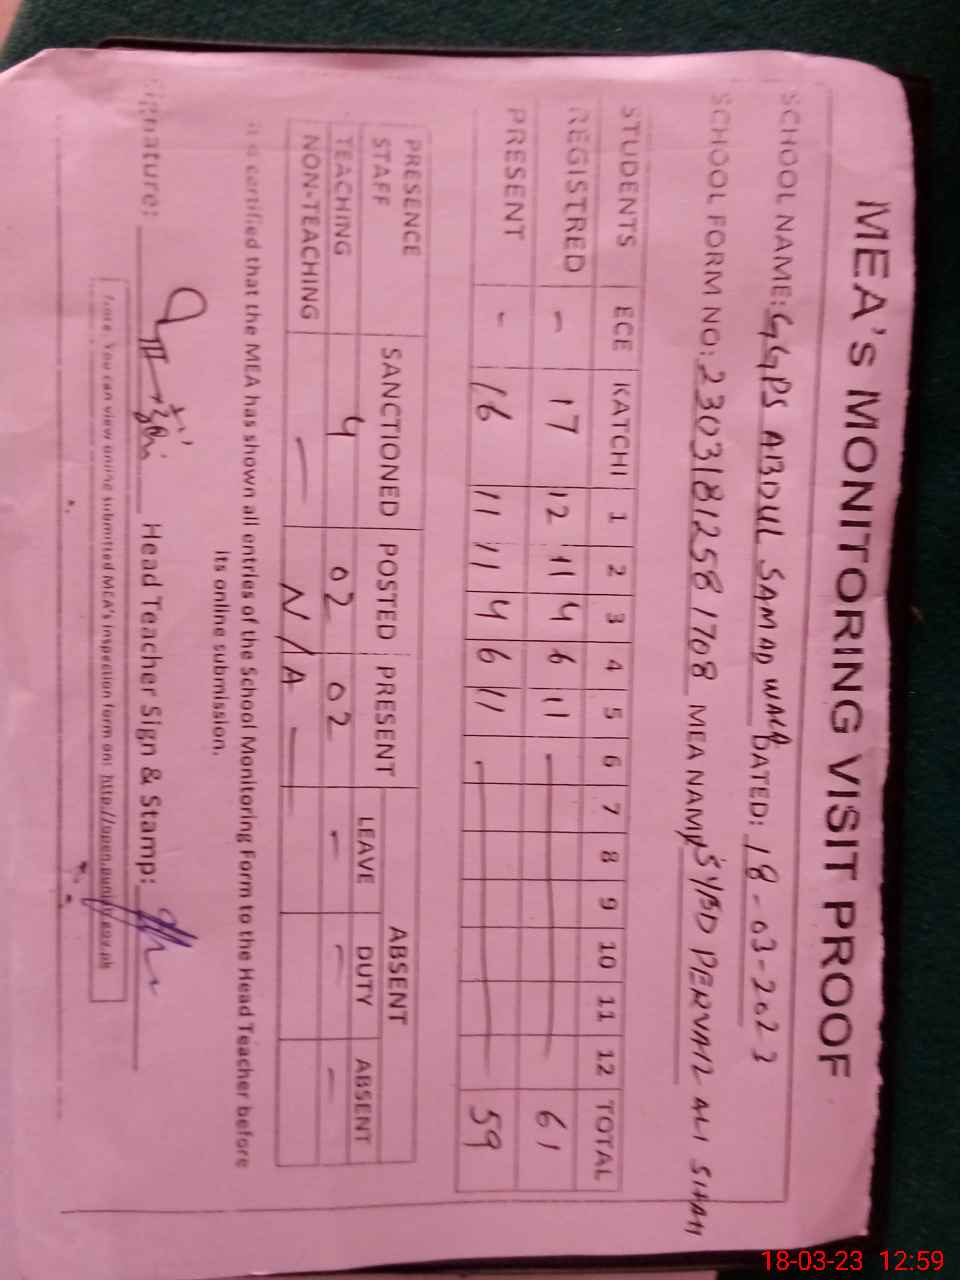 MEA'S MONITORING VISIT PROOF
SCHOOL NAME: GGPS ABDUL SAMAD WALA DATED: 18-03-2023
SCHOOL FORM NO: 23031812581708 MEA NAME SYED PERVAIZ ALI SHAH
STUDENTS ECE KATCHI 1 2 3 4 5 6 7 8 9 10 11 12 TOTAL
REGISTRED - 17 12 11 4 6 11 — 61
PRESENT - 16 11 11 4 6 11 — 59
PRESENCE SANCTIONED POSTED PRESENT ABSENT
STAFF LEAVE DUTY ABSENT
TEACHING 4 02 02 - - -
NON-TEACHING — N/A —
It is certified that the MEA has shown all entries of the School Monitoring Form to the Head Teacher before
its online submission.
Signature: Head Teacher Sign & Stamp:
Note: You can view online submitted MEA's inspection form on: http://open.punjab.gov.pk
18-03-23 12:59